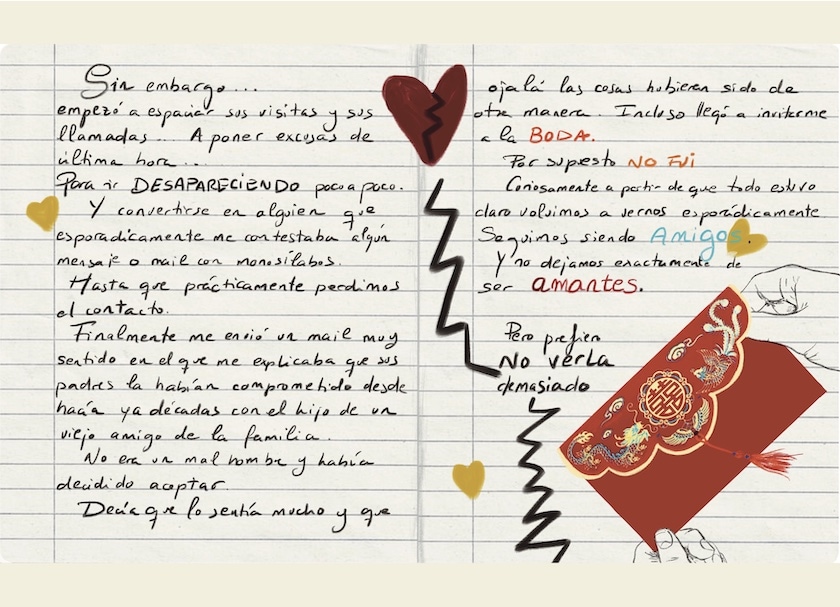 Sin embargo...
empezó a espaciar sus visitas y sus
llamadas... A poner excusas de
última hora...
Para ir DESAPARECIENDO poco a poco.
Y convertirse en alguien que
esporádicamente me contestaba algún
mensaje o mail con monosílabos.
Hasta que prácticamente perdimos
el contacto.
Finalmente me envió un mail muy
sentido en el que me explicaba que sus
padres la habían comprometido desde
hacía ya décadas con el hijo de un
viejo amigo de la familia.
No era un mal hombre y había
decidido aceptar.
Decía que lo sentía mucho y que
ojalá las cosas hubieran sido de
otra manera. Incluso llegó a invitarme
a la BODA.
Por supuesto NO FUI
Curiosamente a partir de que todo estuvo
claro volvimos a vernos esporádicamente
Seguimos siendo Amigos.
Y no dejamos exactamente de
ser amantes.
Pero prefiero
NO VERLA
demasiado